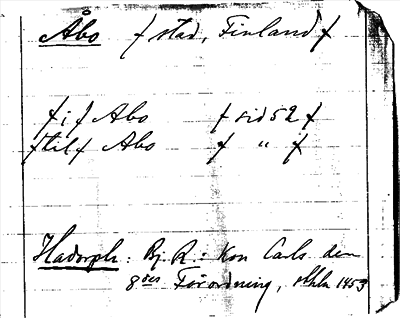 Åbo / stad, Finland /
/ i / Abo / sid 52 /
/ till / Abo / " /
Hadorph: Bj. R.: Kon Carls den
8des Förordning, sthlm 1453